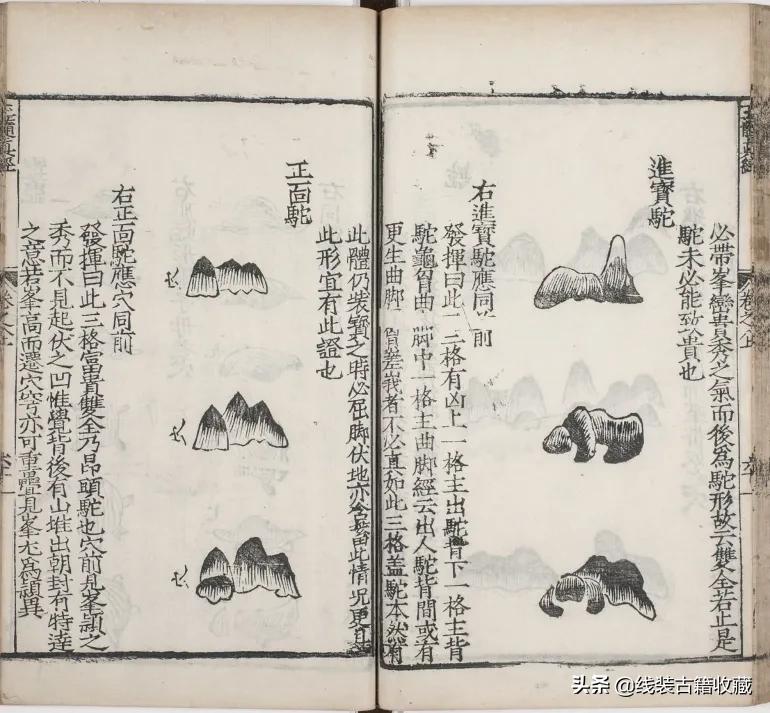 必帶峯巒貴秀之氣而後為駝形故云雙全若止是
駝未必能致貴也
進寶駝
右進寶駝應同前
發揮曰此三格有凶上一格主出駝背下一格主背
駝龜胷曲脚中一格主曲脚經云出人駝背間或有
更生曲脚 者不必真如此三格蓋駝本然有
此體仍裝寶之時必屈脚伏地亦 此情况更具
此形宜有此證也
正面駝
右正面駝應穴同前
發揮曰此三格富貴雙全乃昂頭駝也穴前見峯頭之
秀而不見起伏之凹惟覺背後有山堆出朝封有特達
之意若峯高而遷穴 亦可重 見峯尤為穎異
头条 @线装古籍收藏